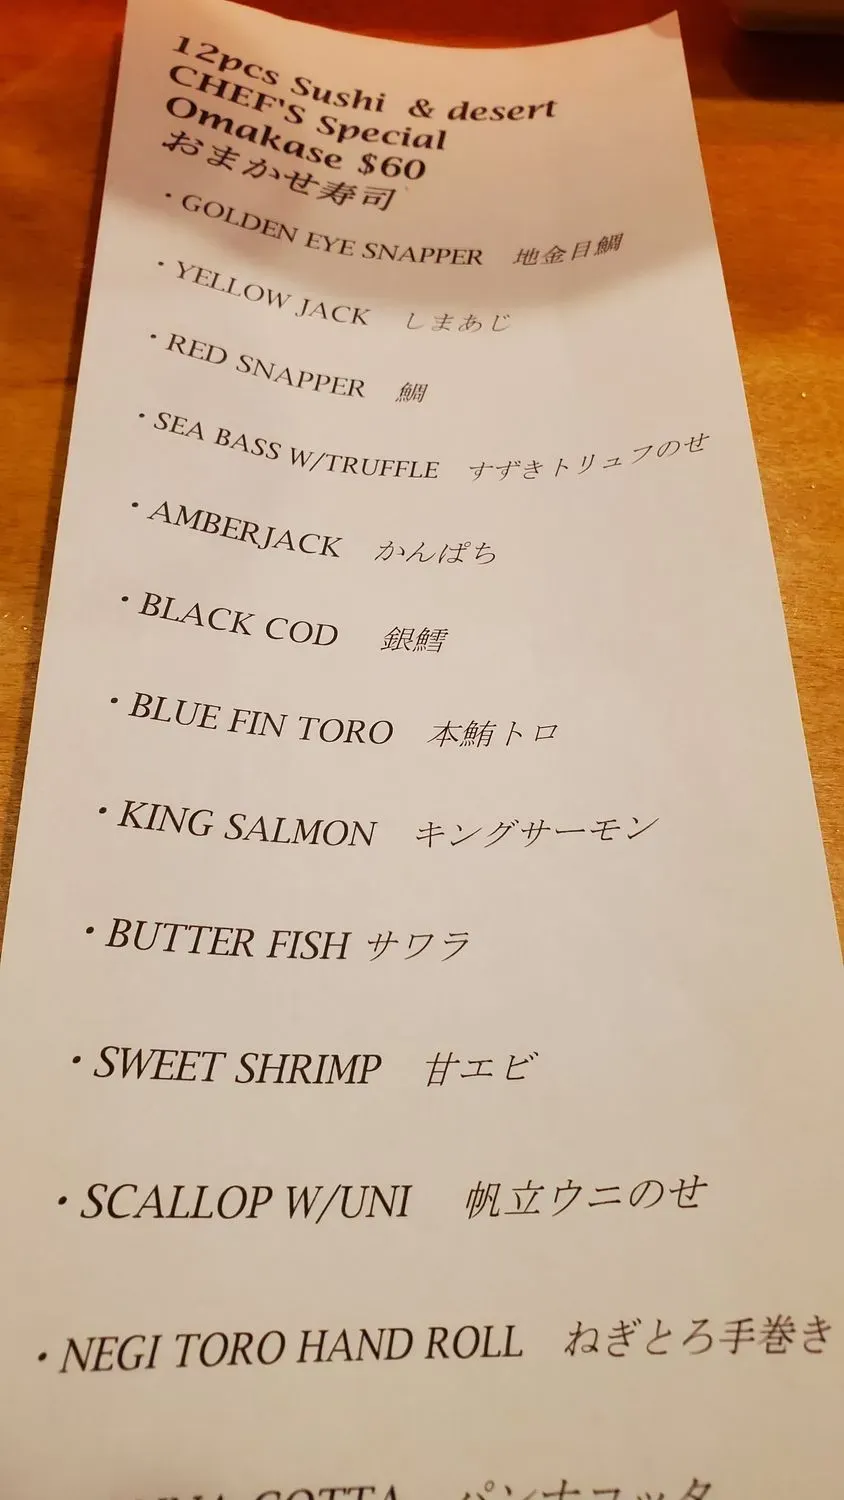 12pcs Sushi & desert
CHEF'S Special
Omakase $60
おまかせ寿司
・GOLDEN EYE SNAPPER 地金目鯛
・YELLOW JACK しまあじ
・RED SNAPPER 鯛
・SEA BASS W/TRUFFLE すずきトリュフのせ
・AMBERJACK かんぱち
・BLACK COD 銀鱈
・BLUE FIN TORO 本鮪トロ
・KING SALMON キングサーモン
・BUTTER FISH サワラ
・SWEET SHRIMP 甘エビ
・SCALLOP W/UNI 帆立ウニのせ
・NEGI TORO HAND ROLL ねぎとろ手巻き
COTTA パンナコッタ